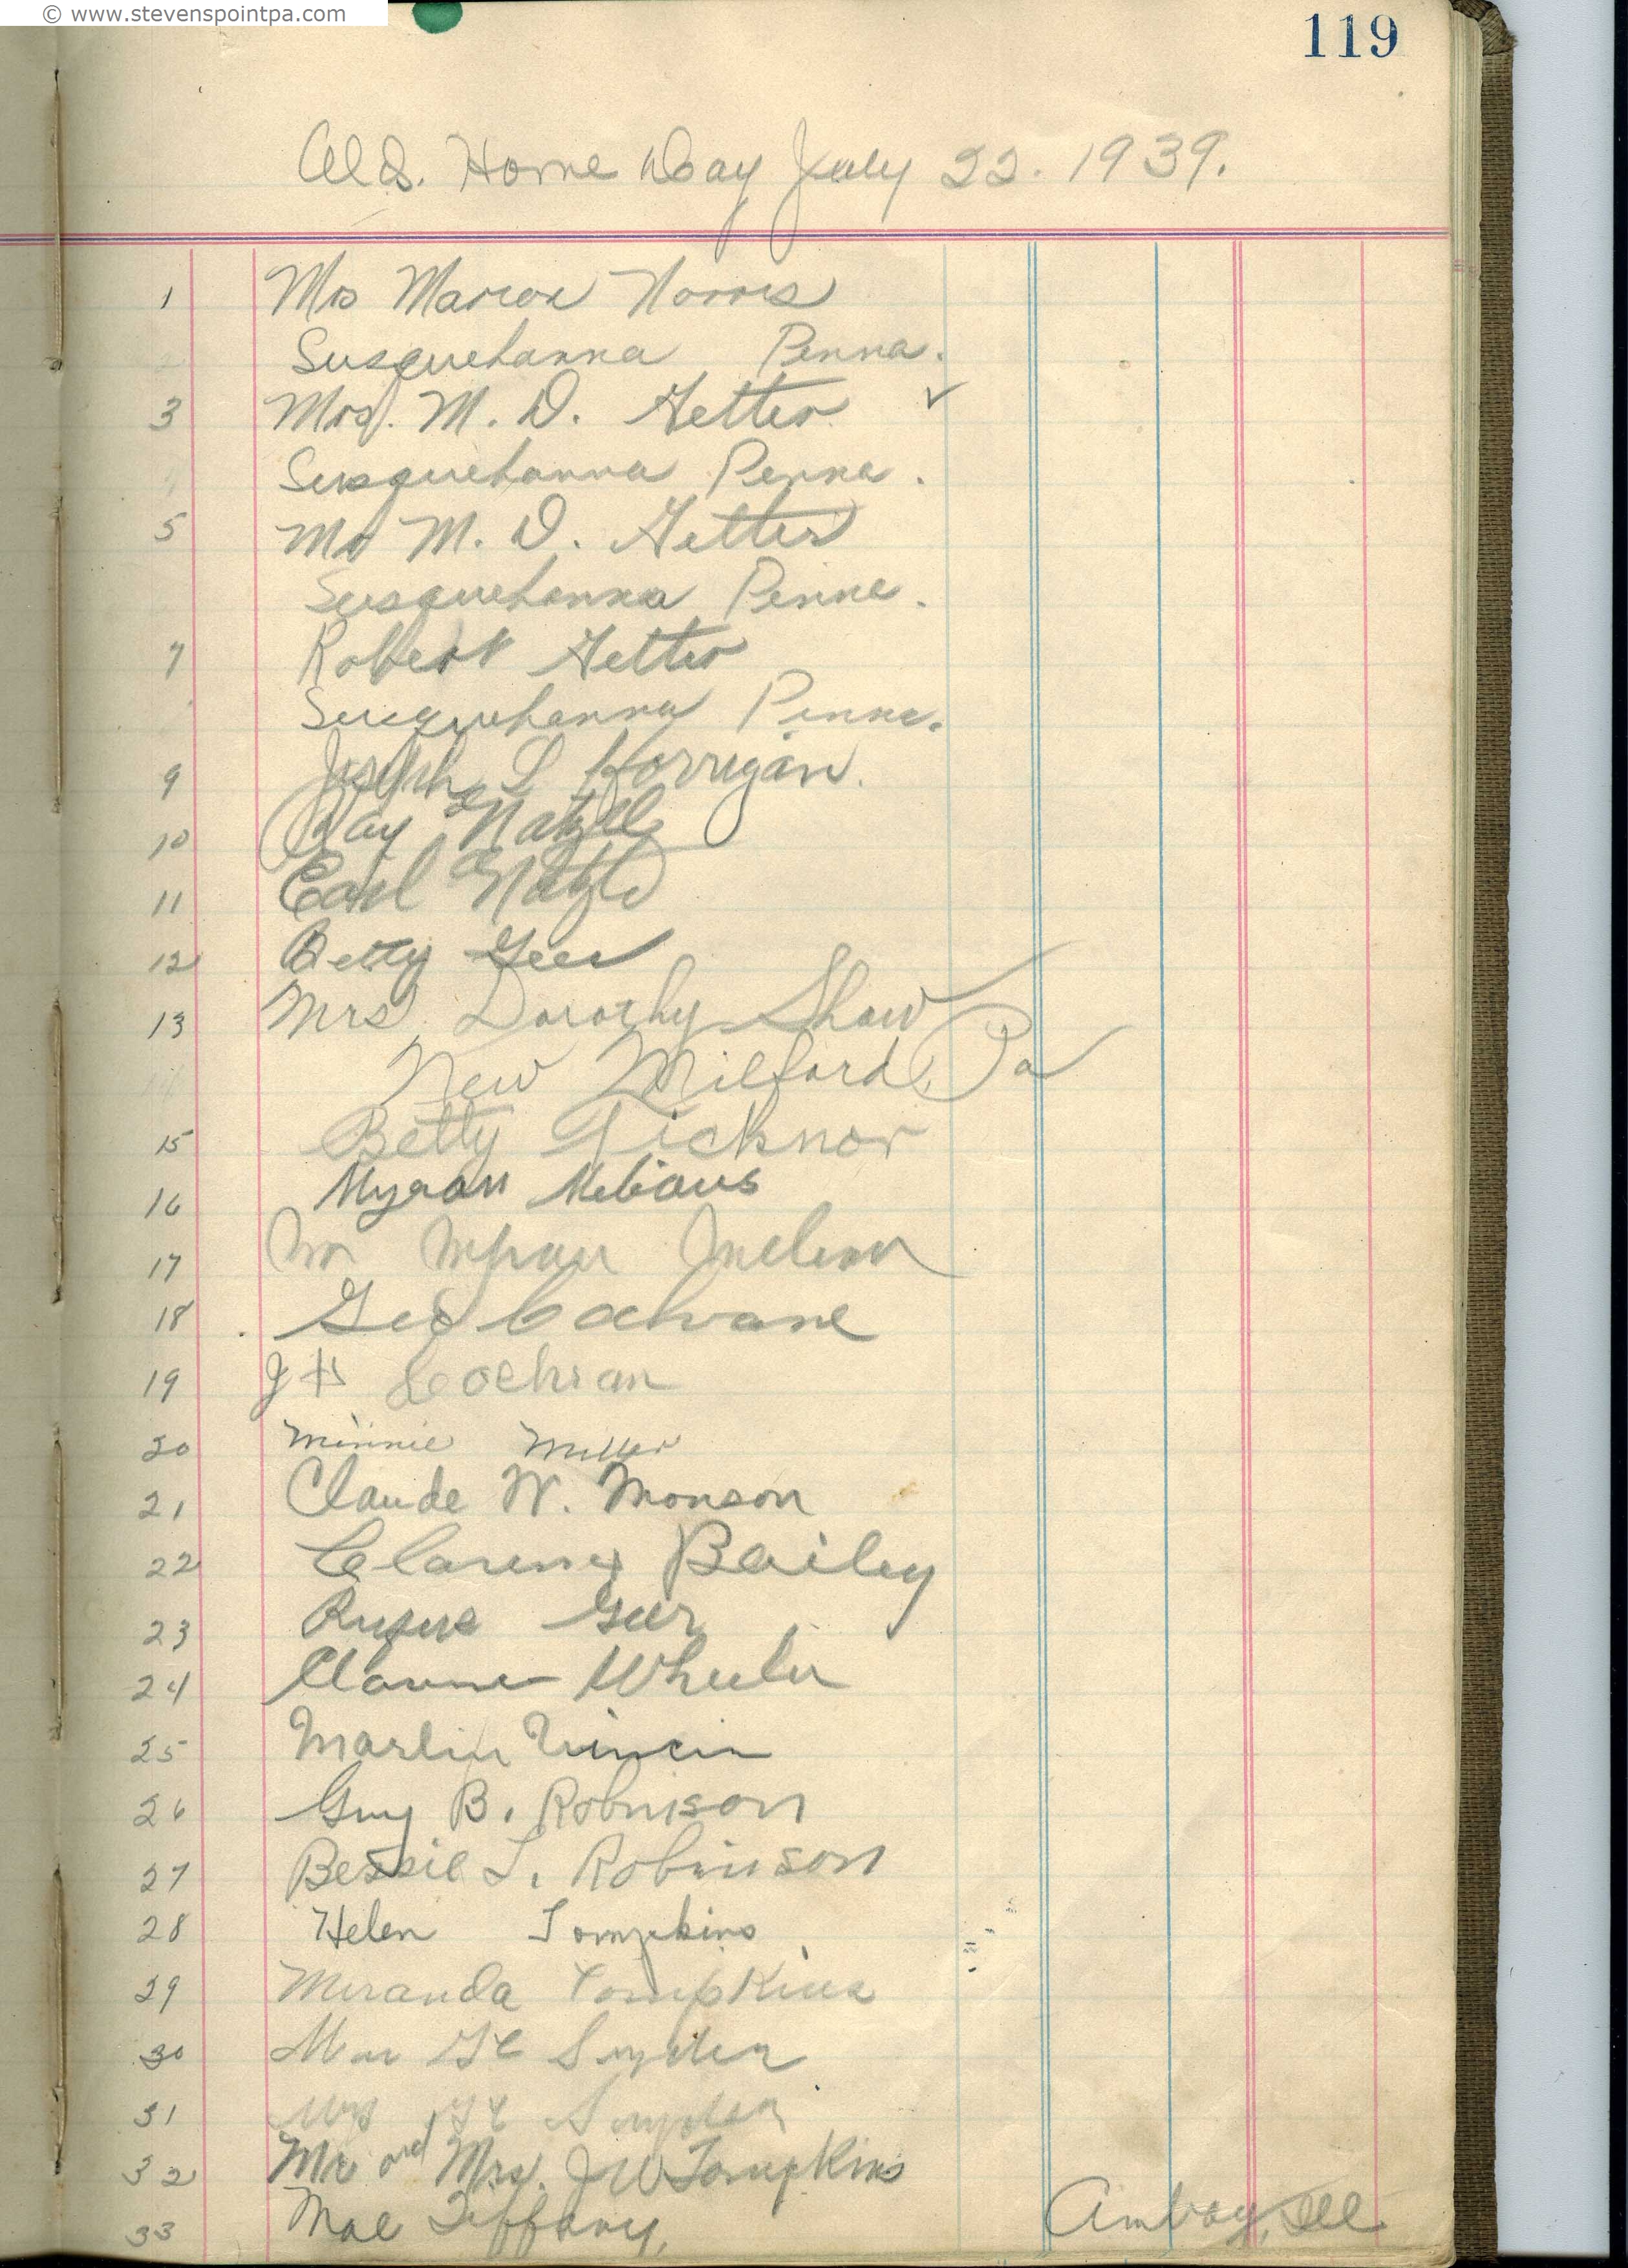 © www.stevenspointpa.com
119
Old. Home Day July 22. 1939.
1 Mrs Marion Norris
Susquehanna Penna.
3 Mrs. M. D. Getter ✓
Susquehanna Penna.
5 Mr M. D. Getter
Susquehanna Penna.
7 Robert Getter
Susquehanna Penna.
9 Joseph L Horrigan.
10 Ray
11 Earl
12 Betty Geer
13 Mrs. Dorothy Shaw
New Milford, Pa
15 Betty Ticknor
16 Myron
17
18 Geo Cochrane
19 J H Cochran
20 Minnie Miller
21 Claude W. Monson
22 Clarence Bailey
23 Rufus Geer
24 Wheeler
25 Marlin
26 Guy B. Robinson
27 Bessie L. Robinson
28 Helen Tompkins
29 Miranda Tompkins
30 Snyder
31 Mrs Snyder
32 Mr and Mrs. J W Tompkins
33 Mae Tiffany, Amboy, Ill